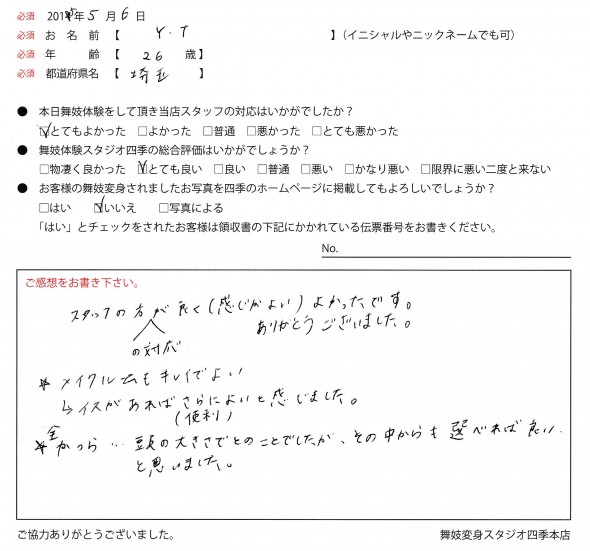 必須 2015年 5 月 6 日
必須 お 名 前 【 Y.T 】(イニシャルやニックネームでも可)
必須 年 齢 【 26 歳】
必須 都道府県名 【 埼玉 】
● 本日舞妓体験をして頂き当店スタッフの対応はいかがでしたか?
☑とてもよかった □よかった □普通 □悪かった □とても悪かった
● 舞妓体験スタジオ四季の総合評価はいかがでしょうか?
□物凄く良かった ☑とても良い □良い □普通 □悪い □かなり悪い □限界に悪い二度と来ない
● お客様の舞妓変身されましたお写真を四季のホームページに掲載してもよろしいでしょうか?
□はい ☑いいえ □写真による
「はい」とチェックをされたお客様は領収書の下記にかかれている伝票番号をお書きください。
No.
ご感想をお書き下さい。
スタッフの方が良く(感じがよい)よかったです。
の対応
ありがとうございました。
* メイクルームもキレイでよい
↳イスがあればさらによいと感じました。
(便利)
* 全かつら … 頭の大きさでとのことでしたが、その中からも選べれば良い
と思いました。
ご協力ありがとうございました。
舞妓変身スタジオ四季本店